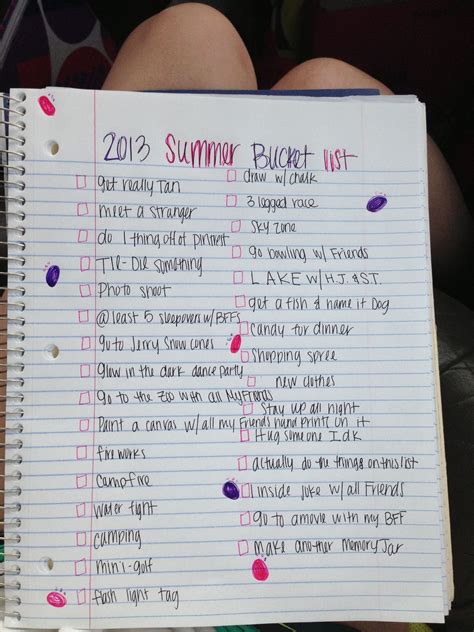 2013 Summer Bucket list
get really Tan
meet a stranger
do 1 thing off of pintrest
TIE-DIE something
Photo shoot
@least 5 sleepovers w/BFFs
go to Jerry Snow cones
Glow in the dark dance party
go to the Zoo with all My Friends
Paint a canvas w/all my Friends hand prints on it
fireworks
Campfire
water fight
camping
mini-golf
flash light tag
draw w/ chalk
3 legged race
Sky zone
go bowling w/ Friends
LAKE W/ H.J. & ST.
get a fish & name it Dog
Candy for dinner
Shopping spree
new clothes
Stay up all night
Hug someone Idk
actually do the things on this list
1 inside joke w/ all Friends
go to a movie with my BFF
make another Memory Jar